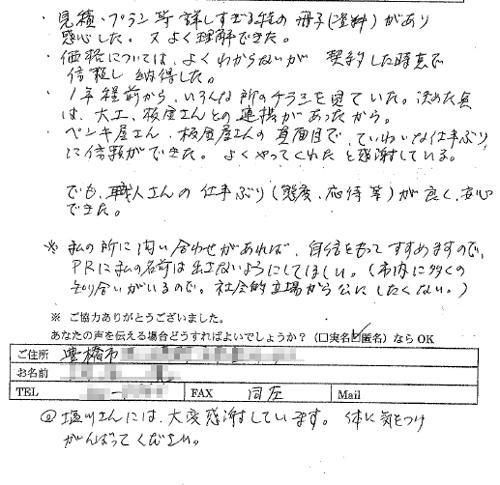 ・見積・プラン等詳しすぎる程の冊子(資料)があり
感心した。又よく理解できた。
・価格については、よくわからないが 契約した時点で
信頼し納得した。
・1年程前から、いろんな所のチラシを見ていた。決めた点
は、大工、板金屋さんとの連携があったから。
・ペンキ屋さん、板金屋さんの真面目で、ていねいな仕事ぶり
に信頼ができた。よくやってくれたと感謝している。
でも、職人さんの仕事ぶり(態度、応待等)が良く、安心
できた。
※ 私の所に問い合わせがあれば、自信をもってすすめますので、
PRに私の名前は出さないようにしてほしい。(市内に多くの
知り合いがいるので。社会的立場から公にしたくない。)
※ ご協力ありがとうございました。
あなたの声を伝える場合どうすればよいでしょうか?(□実名☑匿名)ならOK
ご住所 豊橋市
お名前
TEL FAX 同左 Mail
◎塩川さんには、大変感謝しています。体に気をつけ
がんばってください。